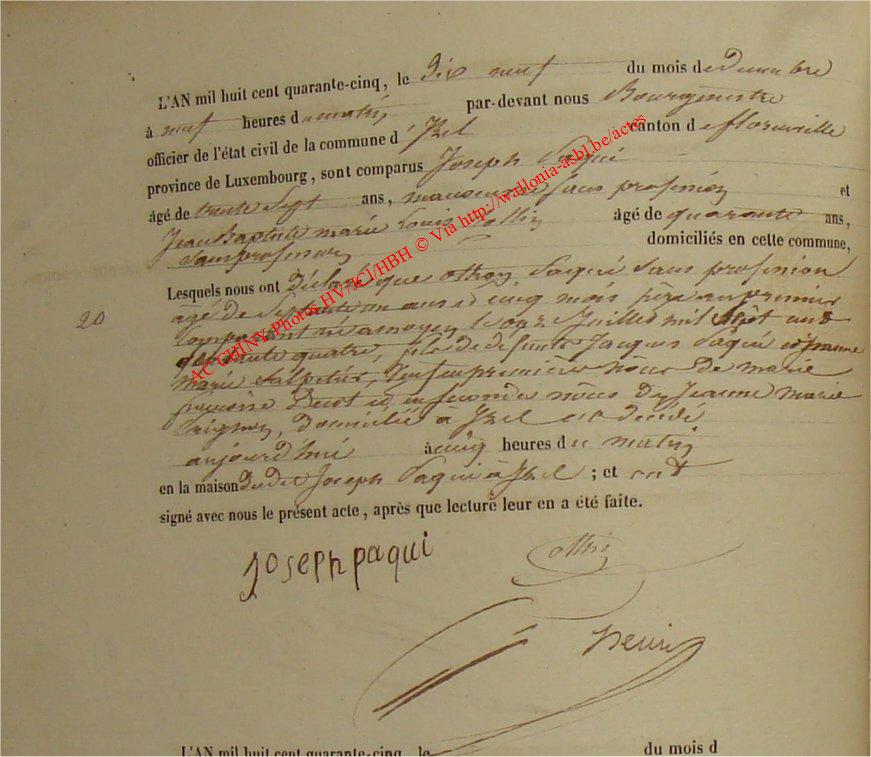 L'AN mil huit cent quarante-cinq, le dix neuf du mois de Decembre
à neuf heures du matin par-devant nous Bourgmestre
officier de l'état civil de la commune d'Izel canton de florenville
province de Luxembourg, sont comparus Joseph Paqui
âgé de trente Sept ans, manoeuvre Sans profession et
Jean Baptiste marie Louis Collin âgé de quarante ans,
Sans profession domiciliés en cette commune,
Lesquels nous ont déclaré que Paqui Sans profession
20
âgé de Septante un ans et cinq mois père au premier
Comparant né a moyen le onze Juillet mil Sept cent
Septante quatre, fils de défunts Jacques Paqui et Jeanne
marie veuf en premières nôces de marie
et en secondes nôces de Jeanne marie
domicilié à Izel est décédé
aujourd'hui à cinq heures du matin
en la maison dudit Joseph Paqui à Izel ; et ont
signé avec nous le présent acte, après que lecture leur en a été faite.
Joseph paqui
Collin
henri
L'AN mil huit cent quarante-cinq, le du mois d
AC CHINY Photos HV/JCJ/HBH © Via http://wallonia-asbl.be/actes